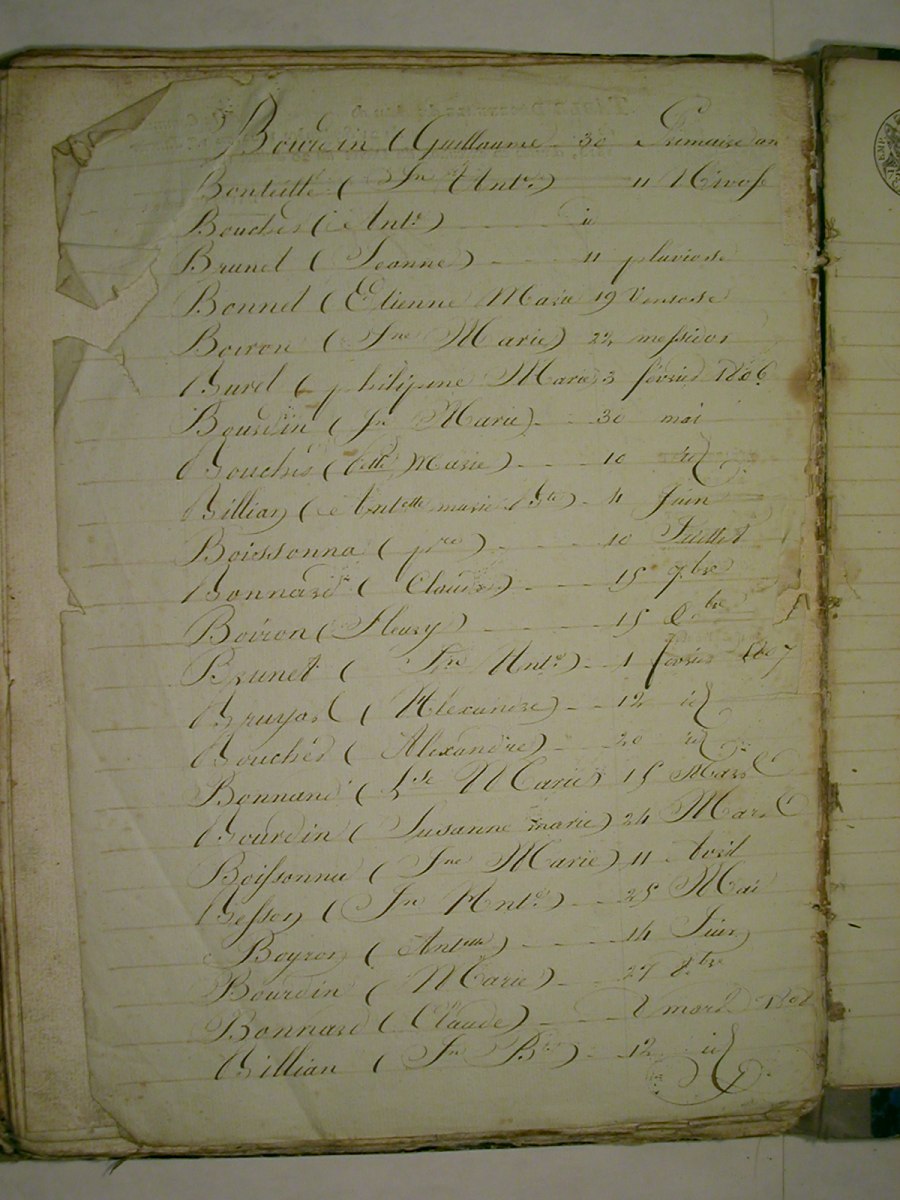 Bourdin (Guillaume 30 Frimaire an
Bouteille (Jn Ante) 11 Nivose
Bouchet (Ante) id
Brunel (Jeanne) 11 pluviose
Bonnel (Etienne Marie 19 Ventose
Boiron (Jne Marie) 22 messidor
Burel (philipine Marie) 3 fevrier 1806
Bourdin (Jn Marie) 30 mai
Bouchet (Marie) 10 id
Billian (Antette marie) 4 Juin
Boissonna (pre) 10 Juillet
Bonnard (Claude) 15 7bre
Boiron (Fleury) 15 8bre
Brunet (Jn Ante) 1 fevrier 1807
Bruyas (Alexandre) 12 id
Bouchet (Alexandre) 20 id
Bonnand (Marie) 15 Mars
Bourdin (Susanne marie) 24 Mars
Boissonna (Jne Marie) 11 Avril
Besson (Jn Ante) 25 Mai
Boyron (Antette) 14 Juin
Bourdin (Marie) 27 8bre
Bonnard (Claude) 2 mars 1808
Billian (Jn Bte) 12 id